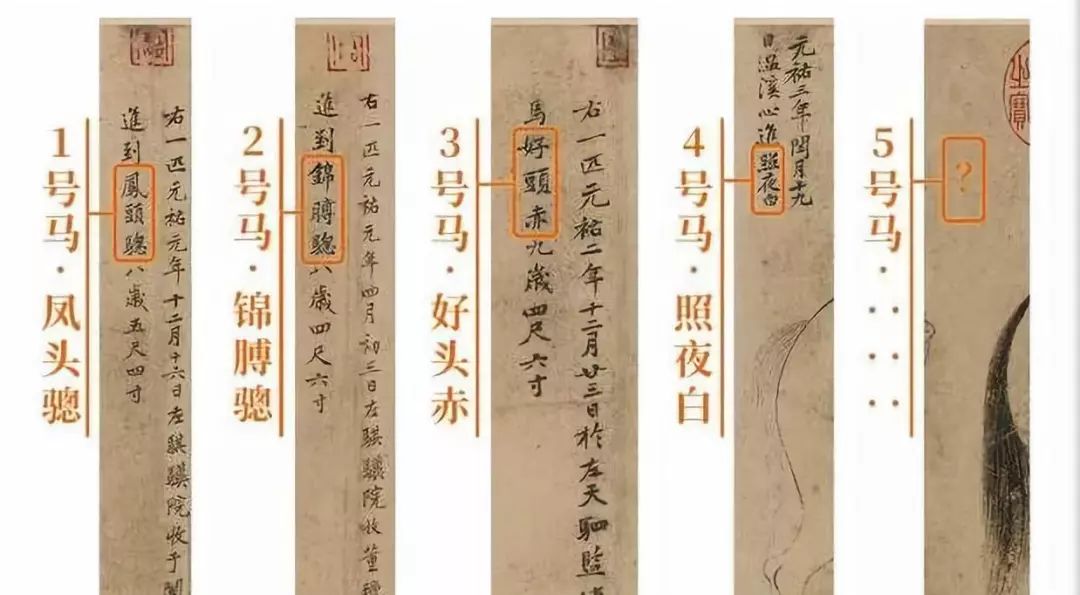 1号马·凤头骢
右一匹元祐元年十二月十六日左騏驥院收于闐
進到鳳頭驄八歲五尺四寸
2号马·锦膊骢
右一匹元祐元年四月初三日左騏驥院收董
進到錦膊驄八歲四尺六寸
3号马·好头赤
右一匹元祐二年十二月廿三日於左天駟監
馬好頭赤九歲四尺六寸
4号马·照夜白
元祐三年閏月十九
日温溪心進照夜白
5号马·····
?
之寶